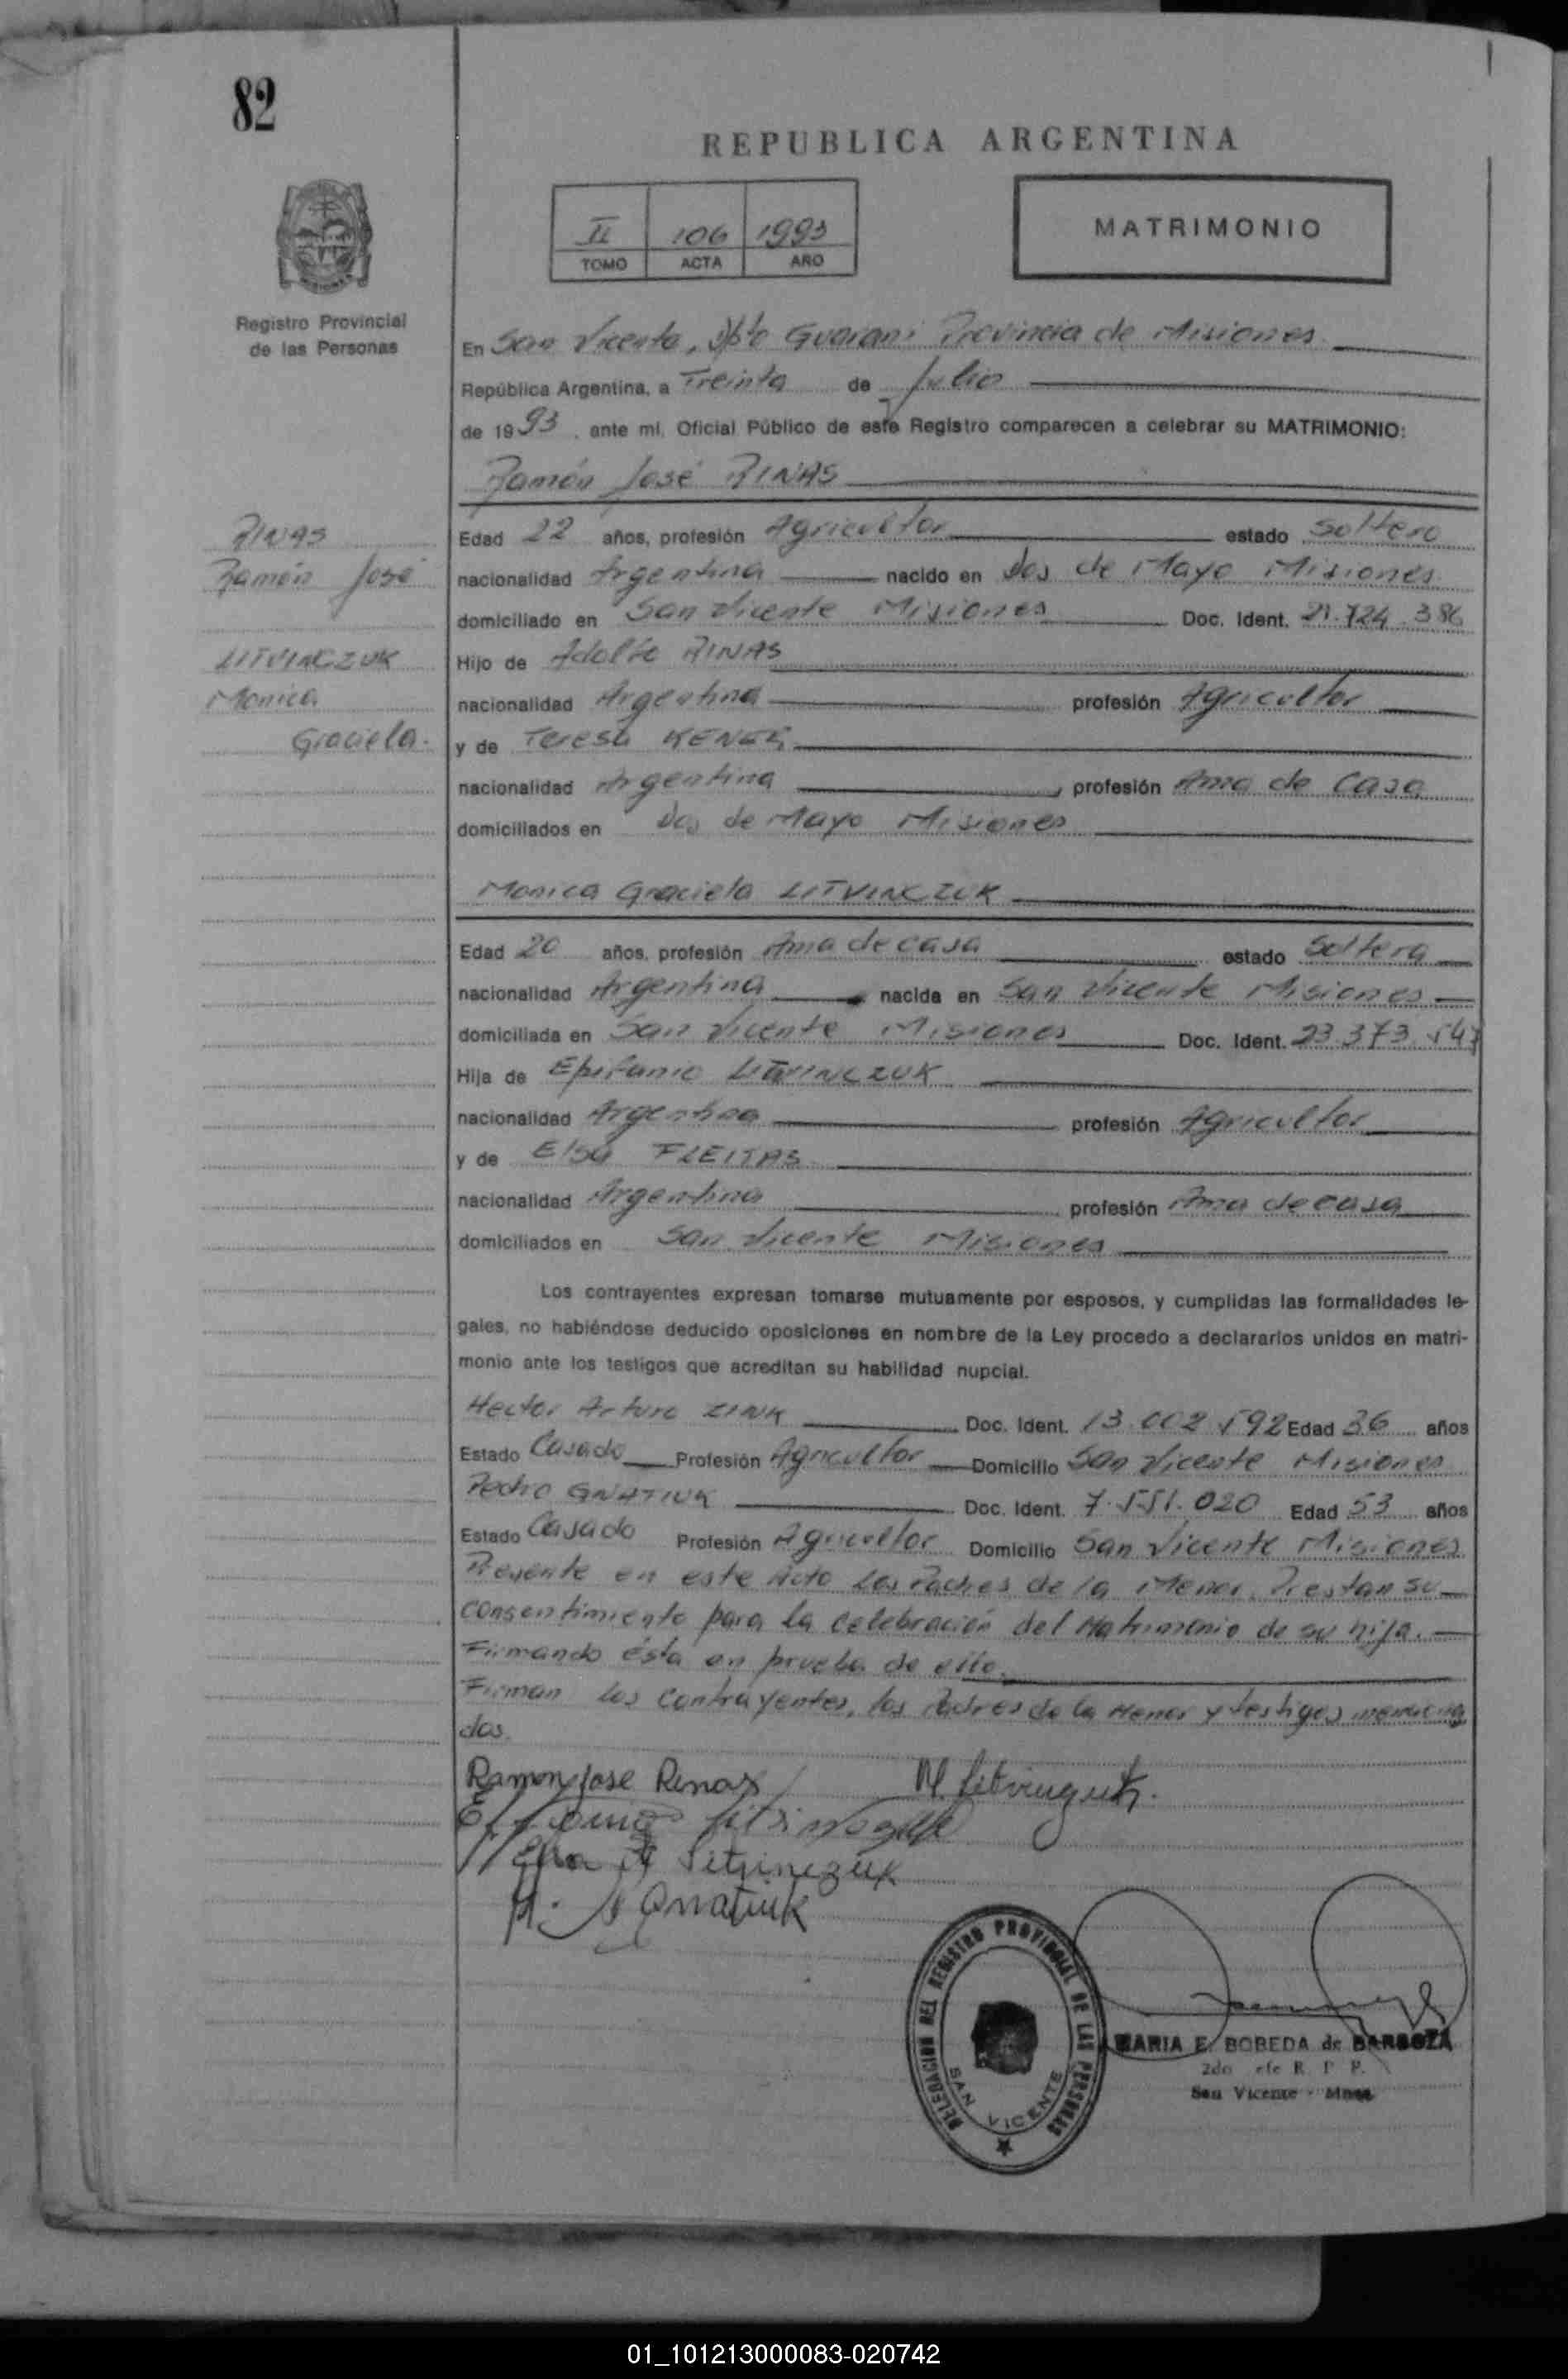 82
REPUBLICA ARGENTINA
II 106 1993
TOMO ACTA AÑO
MATRIMONIO
Registro Provincial
de las Personas
En San Vicente, Dpto Guaraní Provincia de Misiones
República Argentina, a Treinta de Julio
de 1993, ante mi, Oficial Público de este Registro comparecen a celebrar su MATRIMONIO:
Ramón José RINAS
RINAS
Ramón José
LITVINCZUK
Monica
Graciela.
Edad 22 años, profesión Agricultor estado Soltero
nacionalidad Argentina nacido en Dos de Mayo Misiones
domiciliado en San Vicente Misiones Doc. Ident. 21.724.386
Hijo de Adolfo RINAS
nacionalidad Argentina profesión Agricultor
y de Teresa
nacionalidad Argentina profesión Ama de Casa
domiciliados en Dos de Mayo Misiones
Monica Graciela LITVINCZUK
Edad 20 años, profesión Ama de casa estado Soltera
nacionalidad Argentina nacida en San Vicente Misiones
domiciliada en San Vicente Misiones Doc. Ident. 23.373.547
Hija de Epifanio LITVINCZUK
nacionalidad Argentina profesión Agricultor
y de Elsa FLEITAS
nacionalidad Argentina profesión Ama de casa
domiciliados en San Vicente Misiones
Los contrayentes expresan tomarse mutuamente por esposos, y cumplidas las formalidades le-
gales, no habiéndose deducido oposiciones en nombre de la Ley procedo a declararlos unidos en matri-
monio ante los testigos que acreditan su habilidad nupcial.
Hector Arturo ZINK Doc. Ident. 13.002.592 Edad 36 años
Estado Casado Profesión Agricultor Domicilio San Vicente Misiones
Pedro GNATIUK Doc. Ident. 7.551.020 Edad 53 años
Estado Casado Profesión Agricultor Domicilio San Vicente Misiones
Presente en este Acto Los Padres de la Menor, Prestan su
consentimiento para la celebración del Matrimonio de su hija.
Firmando ésta en prueba de ello.
Firman los contrayentes, los Padres de la Menor y testigos menciona
dos.
Ramon Jose Rinas M. Litvinczuk.
Elsa F Litvinczuk
Gnatiuk
DELEGACION DEL REGISTRO PROVINCIAL DE LAS PERSONAS
SAN VICENTE
MARIA E. BOBEDA de BARBOZA
2do Jefe R. P. P.
San Vicente - Mnes.
01_101213000083-020742